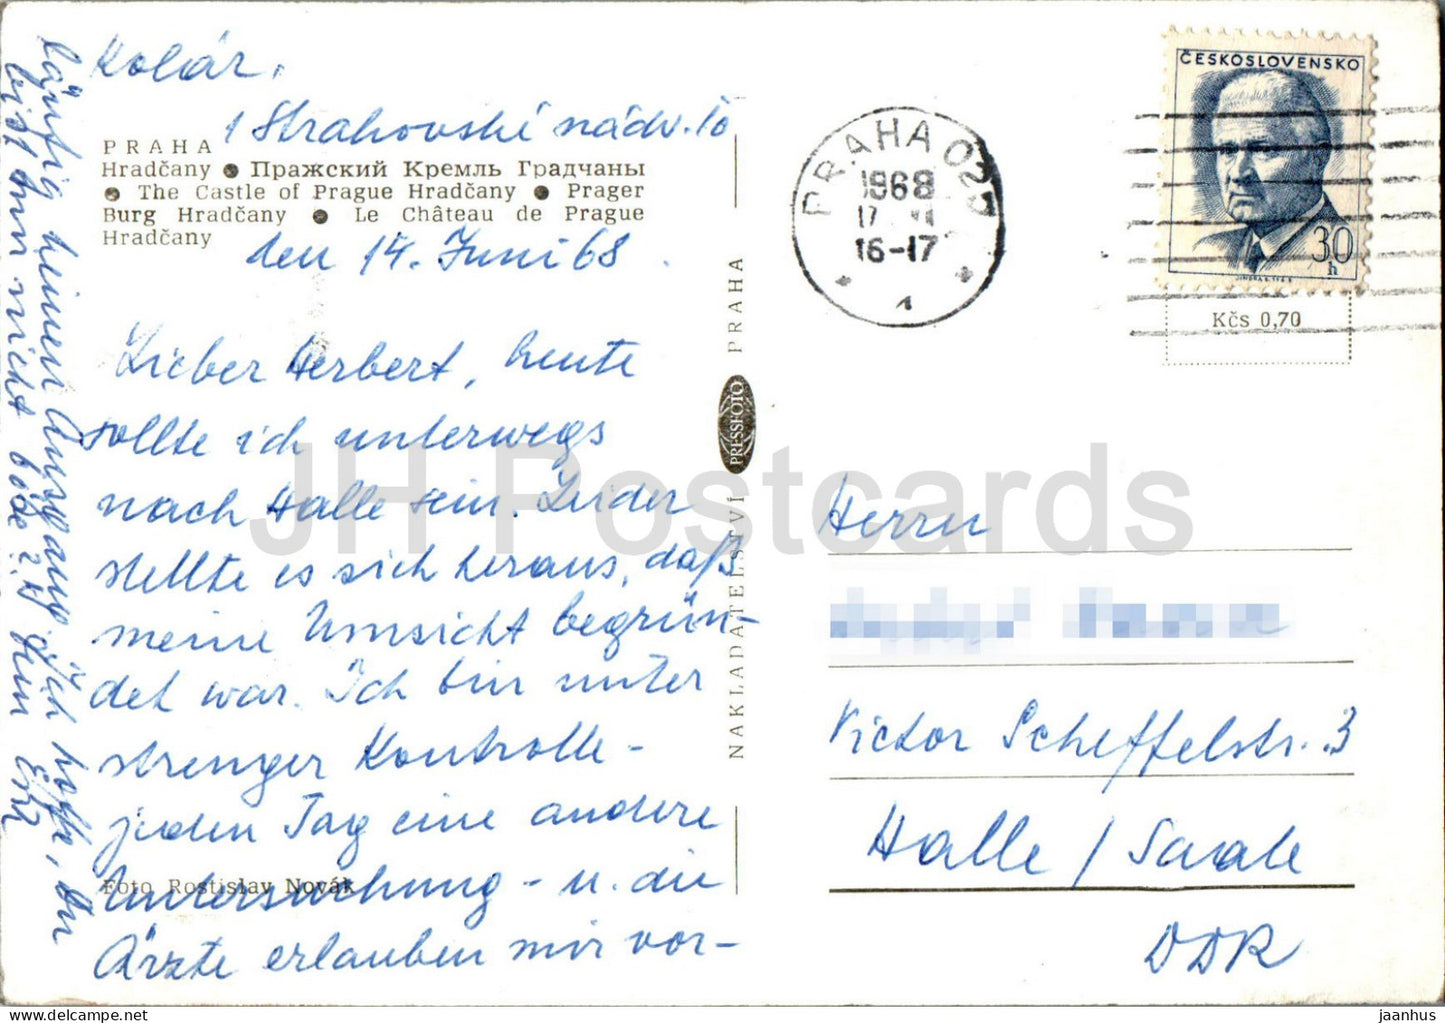 Kolár,
1 Strahovské nádv. 10
PRAHA
Hradčany ● Пражский Кремль Градчаны
● The Castle of Prague Hradčany ● Prager
Burg Hradčany ● Le Château de Prague
Hradčany
den 14. Juni 68.
Lieber Herbert, heute
sollte ich unterwegs
nach Halle sein. Leider
stellte es sich heraus, daß
meine Umsicht begrün-
det war. Ich bin unter
strenger Kontrolle -
jeden Tag eine andere
Untersuchung - u. die
Ärzte erlauben mir vor-
läufig keinen Ausgang. Ich hoffe, Du
bist mir nicht böse?
Foto Rostislav Novák
NAKLADATELSTVÍ PRESSFOTO PRAHA
PRAHA 025
1968
17 VI
16-17
1
ČESKOSLOVENSKO
30
h
Kčs 0,70
Herrn
Victor Scheffelstr. 3
Halle / Saale
DDR
JH Postcards
jaanhus
https://jhpostcards.com